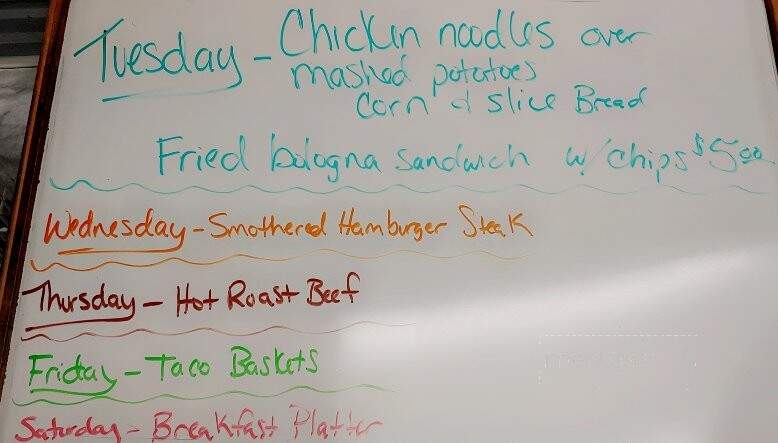 Tuesday - Chicken noodles over
mashed potatoes
Corn & slice Bread
Fried bologna sandwich w/ chips $5.00
Wednesday - Smothered Hamburger Steak
Thursday - Hot Roast Beef
Friday - Taco Baskets
Saturday - Breakfast Platter